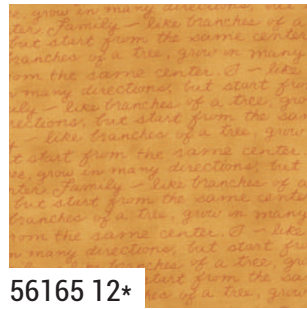 e, grow in many directions, but
ter. Family – like branches of a
but start from the same center
branches of a tree, grow in many
om the same center. I – like
n many directions, but start fro
ily – like branches of a tree, gro
rections, but start from the sam
like branches of a tree, grow
t start from the same center
ee, grow in many directions, but
nter. Family – like branches of a
but start from the same center
branches of a tree, grow in many
rom the same center. I – like
n many directions, but start fr
like branches of a tree, gro
start from the sa
hes of a tree, grow
56165 12*